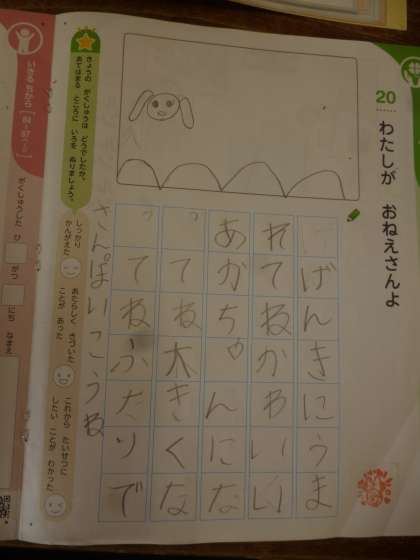 20 わたしが おねえさんよ
げんきにうま
れてねかわいい
あかちゃんにな
ってね大きくな
ってねふたりで
さんぽいこうね
きょうの がくしゅうは どうでしたか。
あてはまる ところに いろを ぬりましょう。
しっかり
かんがえた
あたらしく きづいた
ことが あった
これから たいせつに
したい ことが わかった
いきる ちから
がくしゅうした ひ がつ にち なまえ